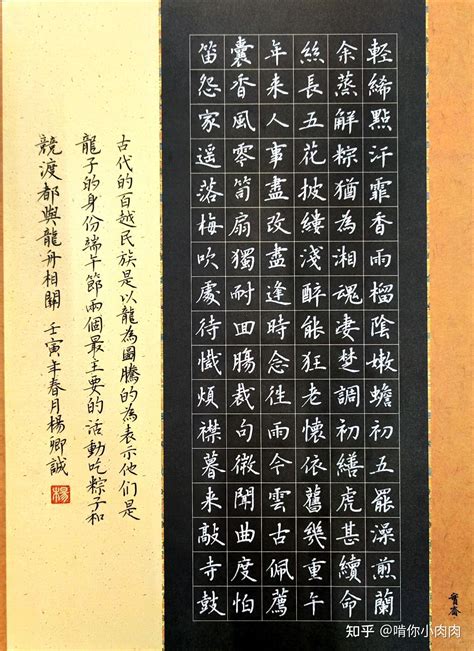 輕絺點汗霏香雨榴陰嫩蟾初五罷澡煎蘭
余蒸解粽猶為湘魂凄楚調初繙虎甚續命
絲長五花披縷淺醉能狂老懷依舊幾重午
年来人事盡改盡逢時念往雨今雲古佩薦
囊香風零筒扇獨耐回腸裁句微閑曲度怕
笛怨家遥落梅吹處待懺煩襟暮来敲寺鼓
古代的百越民族是以龍為圖騰的為表示他們是
龍子的身份端午節兩個最主要的活動吃粽子和
競渡都與龍舟相關 壬寅年春月楊卿誠
楊
知乎 @啃你小肉肉